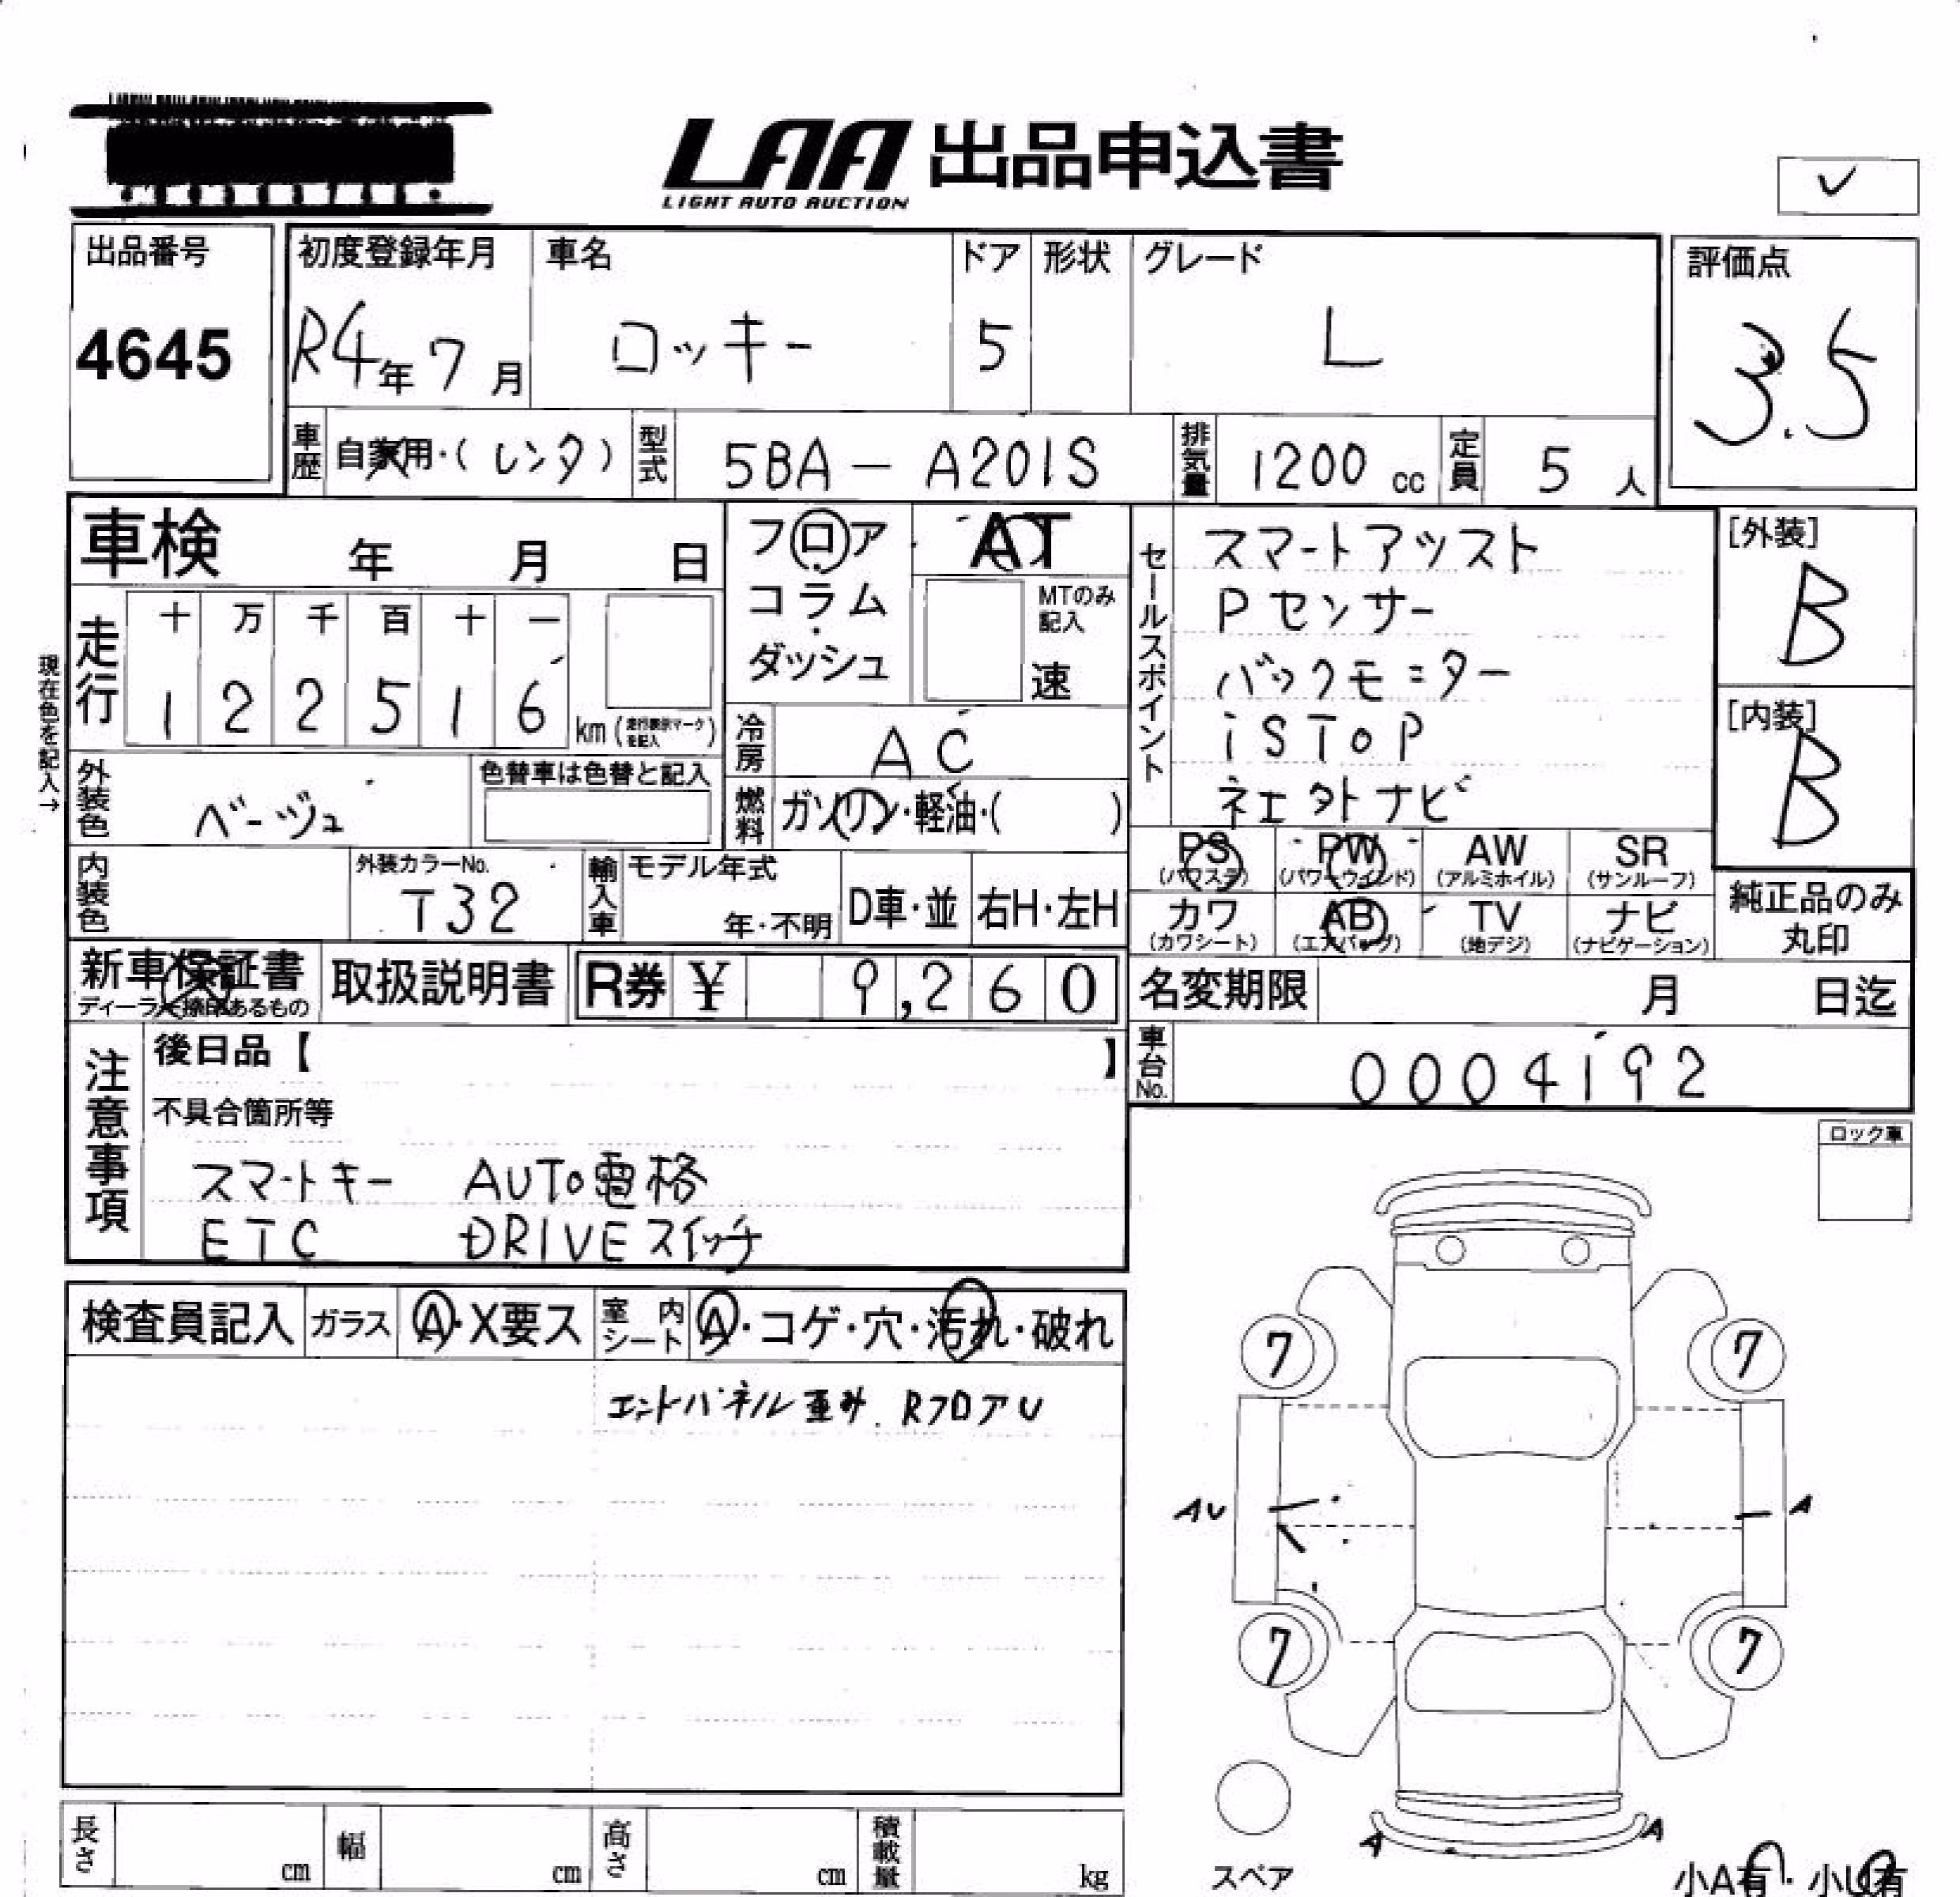 LAA 出品申込書
LIGHT AUTO AUCTION
✓
出品番号
4645
初度登録年月
R4年7月
車名
ロッキー
ドア
5
形状
グレード
L
評価点
3.5
車歴
自家用・(レンタ)
型式
5BA-A201S
排気量
1200 cc
定員
5 人
車検 年 月 日
フロア
コラム
ダッシュ
AT
MTのみ記入
速
セールスポイント
スマートアッスト
Pセンサー
バックモニター
iSToP
ネエタトナビ
[外装]
B
[内装]
B
現在色を記入→
走行
十 万 千 百 十 一
1 2 2 5 1 6
km (走行表示マークを記入)
冷房
AC
燃料
ガソリン・軽油・( )
外装色
ベージュ
色替車は色替と記入
内装色
外装カラーNo.
T32
輸入車
モデル年式
年・不明
D車・並
右H・左H
PS
(パワステ)
PW
(パワーウインド)
AW
(アルミホイル)
SR
(サンルーフ)
カワ
(カワシート)
AB
(エアバッグ)
TV
(地デジ)
ナビ
(ナビゲーション)
純正品のみ
丸印
新車保証書
ディーラー捺印あるもの
取扱説明書
R券 ¥ 9,260
名変期限 月 日迄
車台No.
0004192
注意事項
後日品【 】
不具合箇所等
スマートキー AUTo電格
ETC DRIVEスイッチ
ロック車
検査員記入
ガラス
A・X要ス
室内シート
A・コゲ・穴・汚れ・破れ
エントパネル歪み. RフロアU
7
7
AU
A
7
7
A
A
スペア
小A有・小U有
長さ cm
幅 cm
高さ cm
積載量 kg